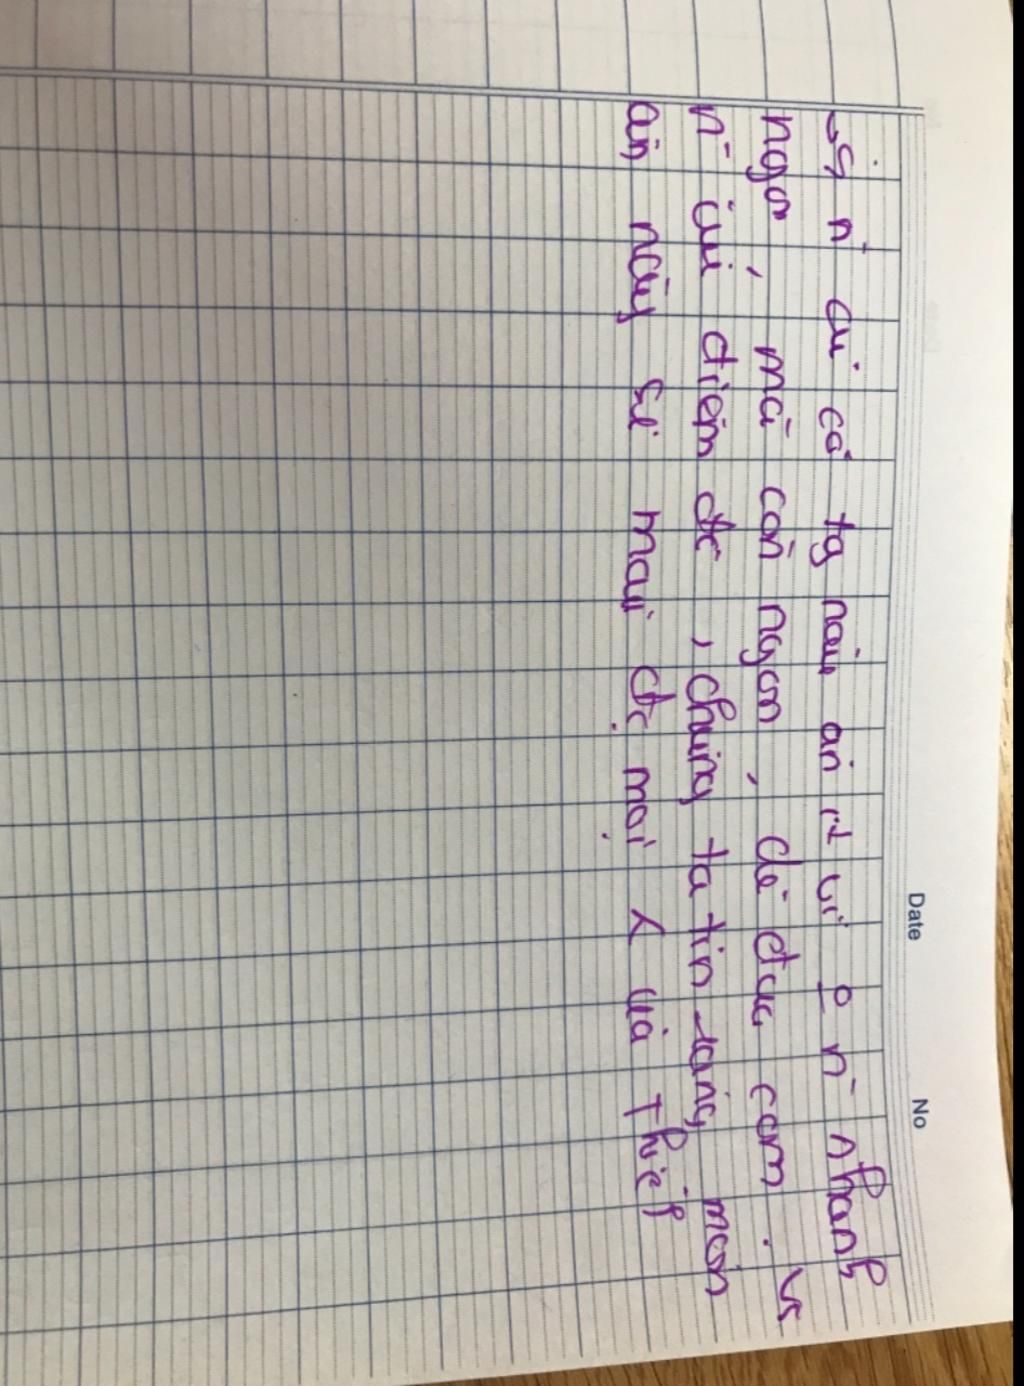 Date No
n~ ai có tg nấu ăn ít vì o n~ nhanh
ngọ, mà còn ngon, dễ đưa cơm. Vs
n~ ưu điểm đó, chúng ta tin rằng món
ăn này sẽ mãi đc mọi và thiếp